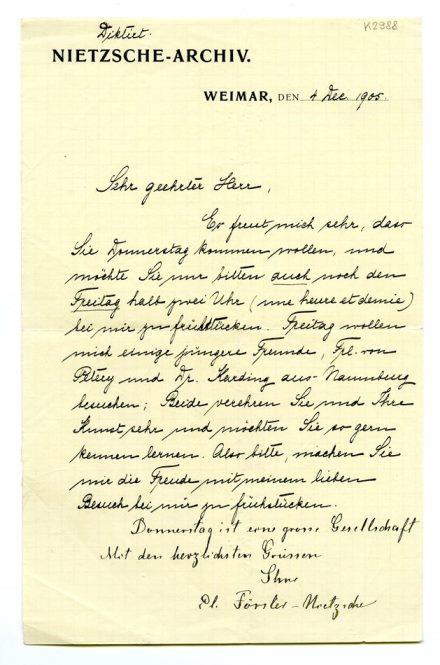 Diktiert.
K2988
NIETZSCHE-ARCHIV.
WEIMAR, DEN 4 Dec. 1905.
Sehr geehrter Herr,
Es freut mich sehr, dass
Sie Donnerstag kommen wollen, und
möchte Sie nur bitten auch noch den
Freitag halb zwei Uhr (une heure et demie)
bei mir zu frühstücken. Freitag wollen
mich einige jüngere Freunde, Frl. von
und Dr. Harding aus Naumburg
besuchen; Beide verehren Sie und Ihre
Kunst sehr und möchten Sie so gern
kennen lernen. Also bitte, machen Sie
mir die Freude mit meinem lieben
Besuch bei mir zu frühstücken.
Donnerstag ist eine grosse Gesellschaft
Mit den herzlichsten Grüssen
Ihre
Förster-Nietzsche